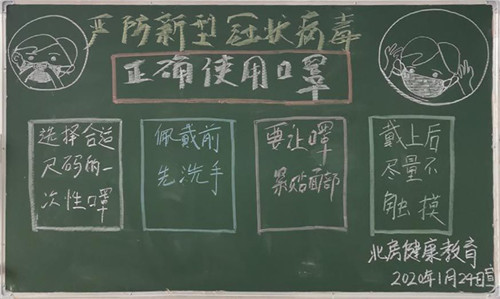 严防新型冠状病毒
正确使用口罩
选择合适
尺码的一
次性口罩
佩戴前
先洗手
要让口罩
紧贴面部
戴上后
尽量不
触摸
北房健康教育
2020年1月24日宣